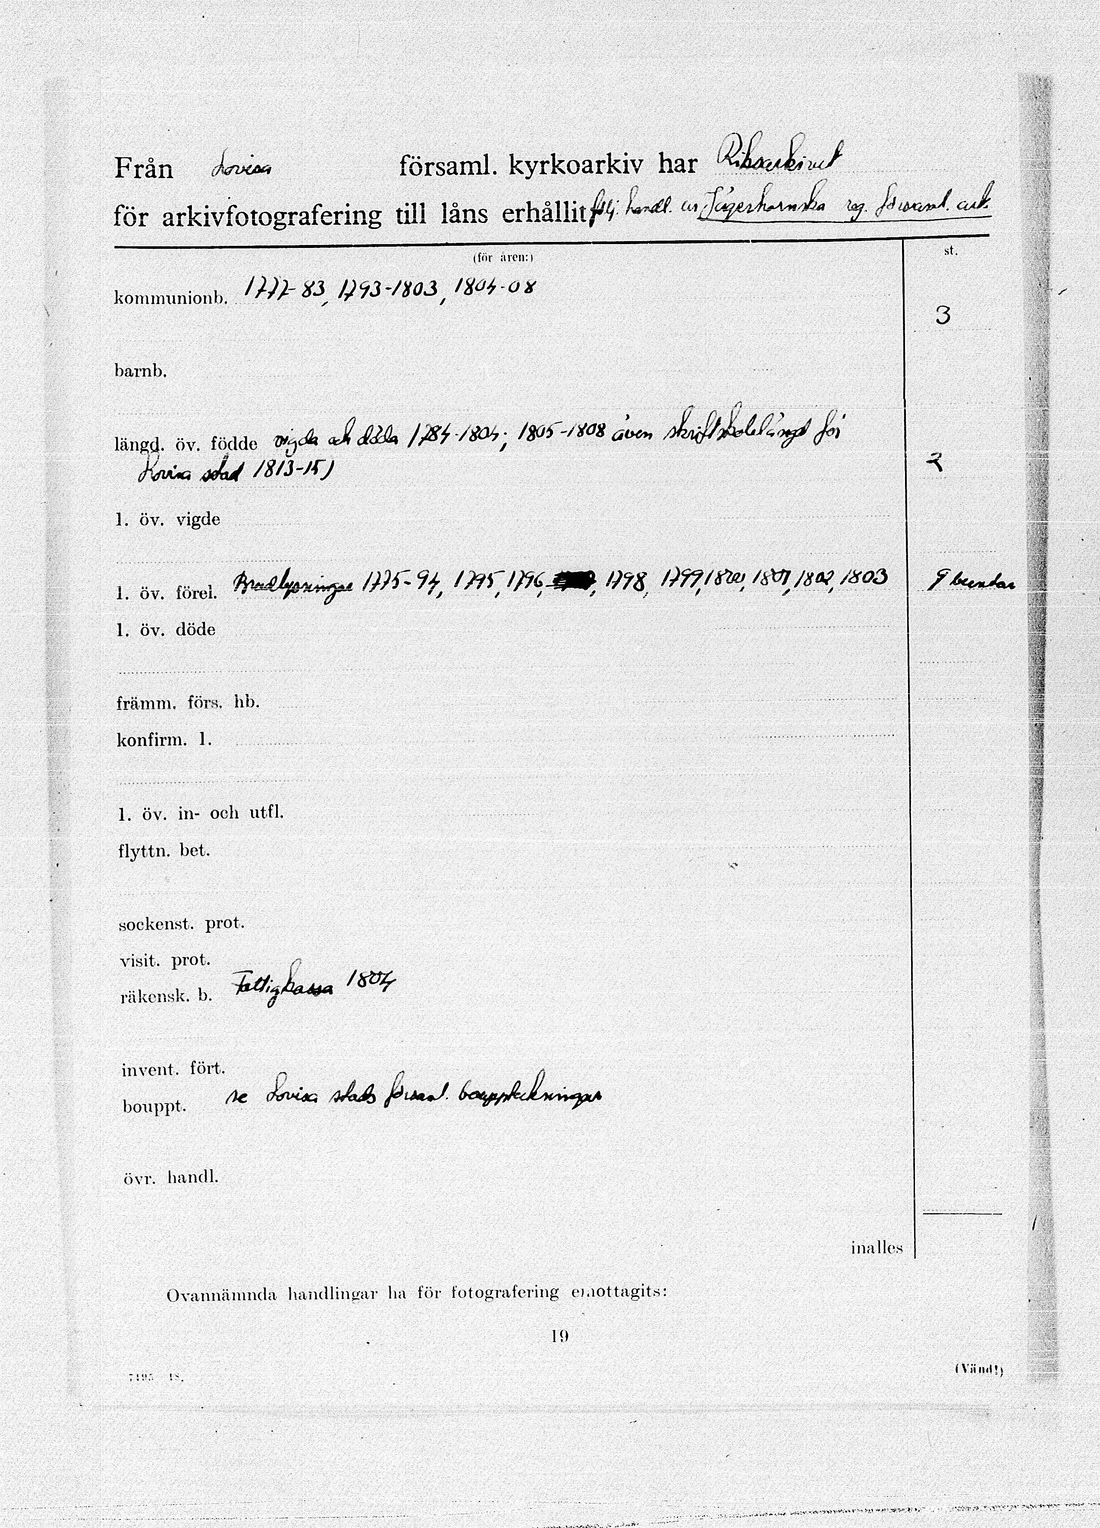 Från Lovisa församl. kyrkoarkiv har Riksarkivet
för arkivfotografering till låns erhållit följ. handl. ur Jägerhornska reg. församl. ark.
(för åren:) st.
kommunionb. 1777-83, 1793-1803, 1804-08
3
barnb.
längd. öv. födde vigda och döda 1784-1804; 1805-1808 även skriftskolelängd för
Lovisa stad 1813-15) 2
l. öv. vigde
l. öv. förel. 1775-94, 1795, 1796, 1798, 1799, 1800, 1801, 1802, 1803 9 buntar
l. öv. döde
främm. förs. hb.
konfirm. l.
l. öv. in- och utfl.
flyttn. bet.
sockenst. prot.
visit. prot.
räkensk. b. Fattigkassa 1804
invent. fört.
bouppt. se Lovisa stads församl. bouppteckningar
övr. handl.
inalles
Ovannämnda handlingar ha för fotografering emottagits:
19
7495 48. (Vänd!)